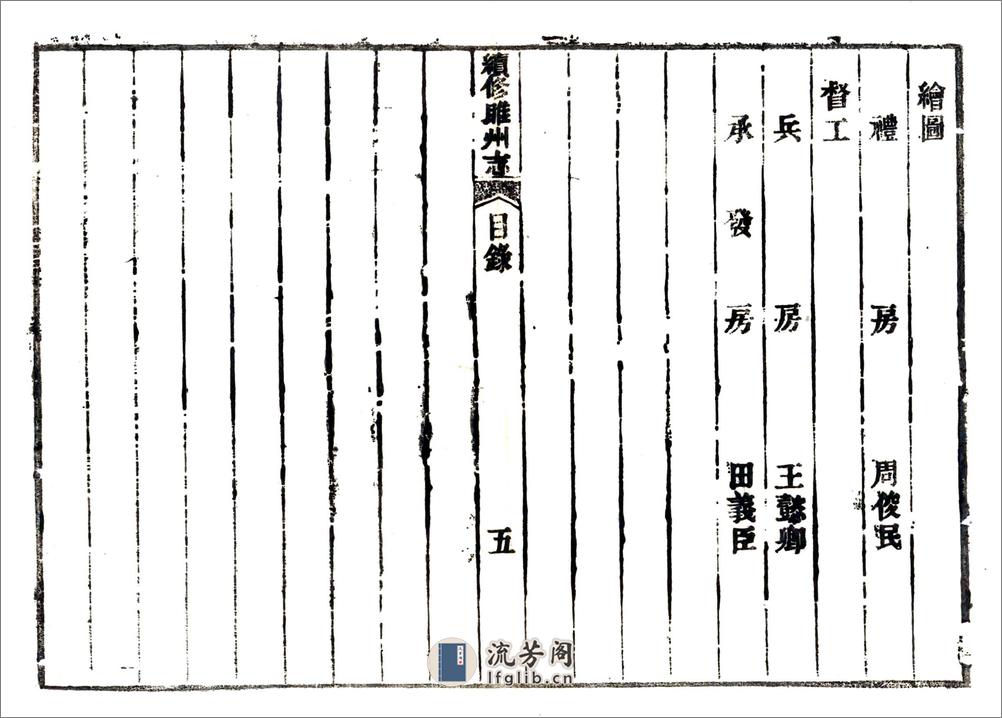 繪圖
禮房 周俊民
督工
兵房 王懿卿
承發房 田義臣
續修睢州志 目錄 五
流芳阁
lfglib.cn